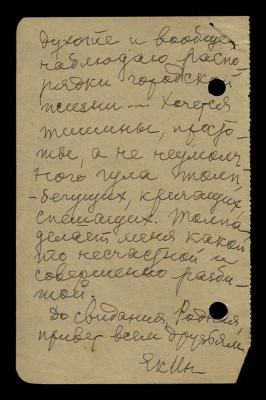 духоте и вообще
наблюдаю распо-
рядки городской
жизни --- Хочется
тишины, просто-
ты, а не неумолч-
ного гула толп,
-бегущих, кричащих
спешащих. Толпа
делает меня какой
то несчастной и
совершенно разби-
той.
До свидания, Родная,
привет всем друзьям